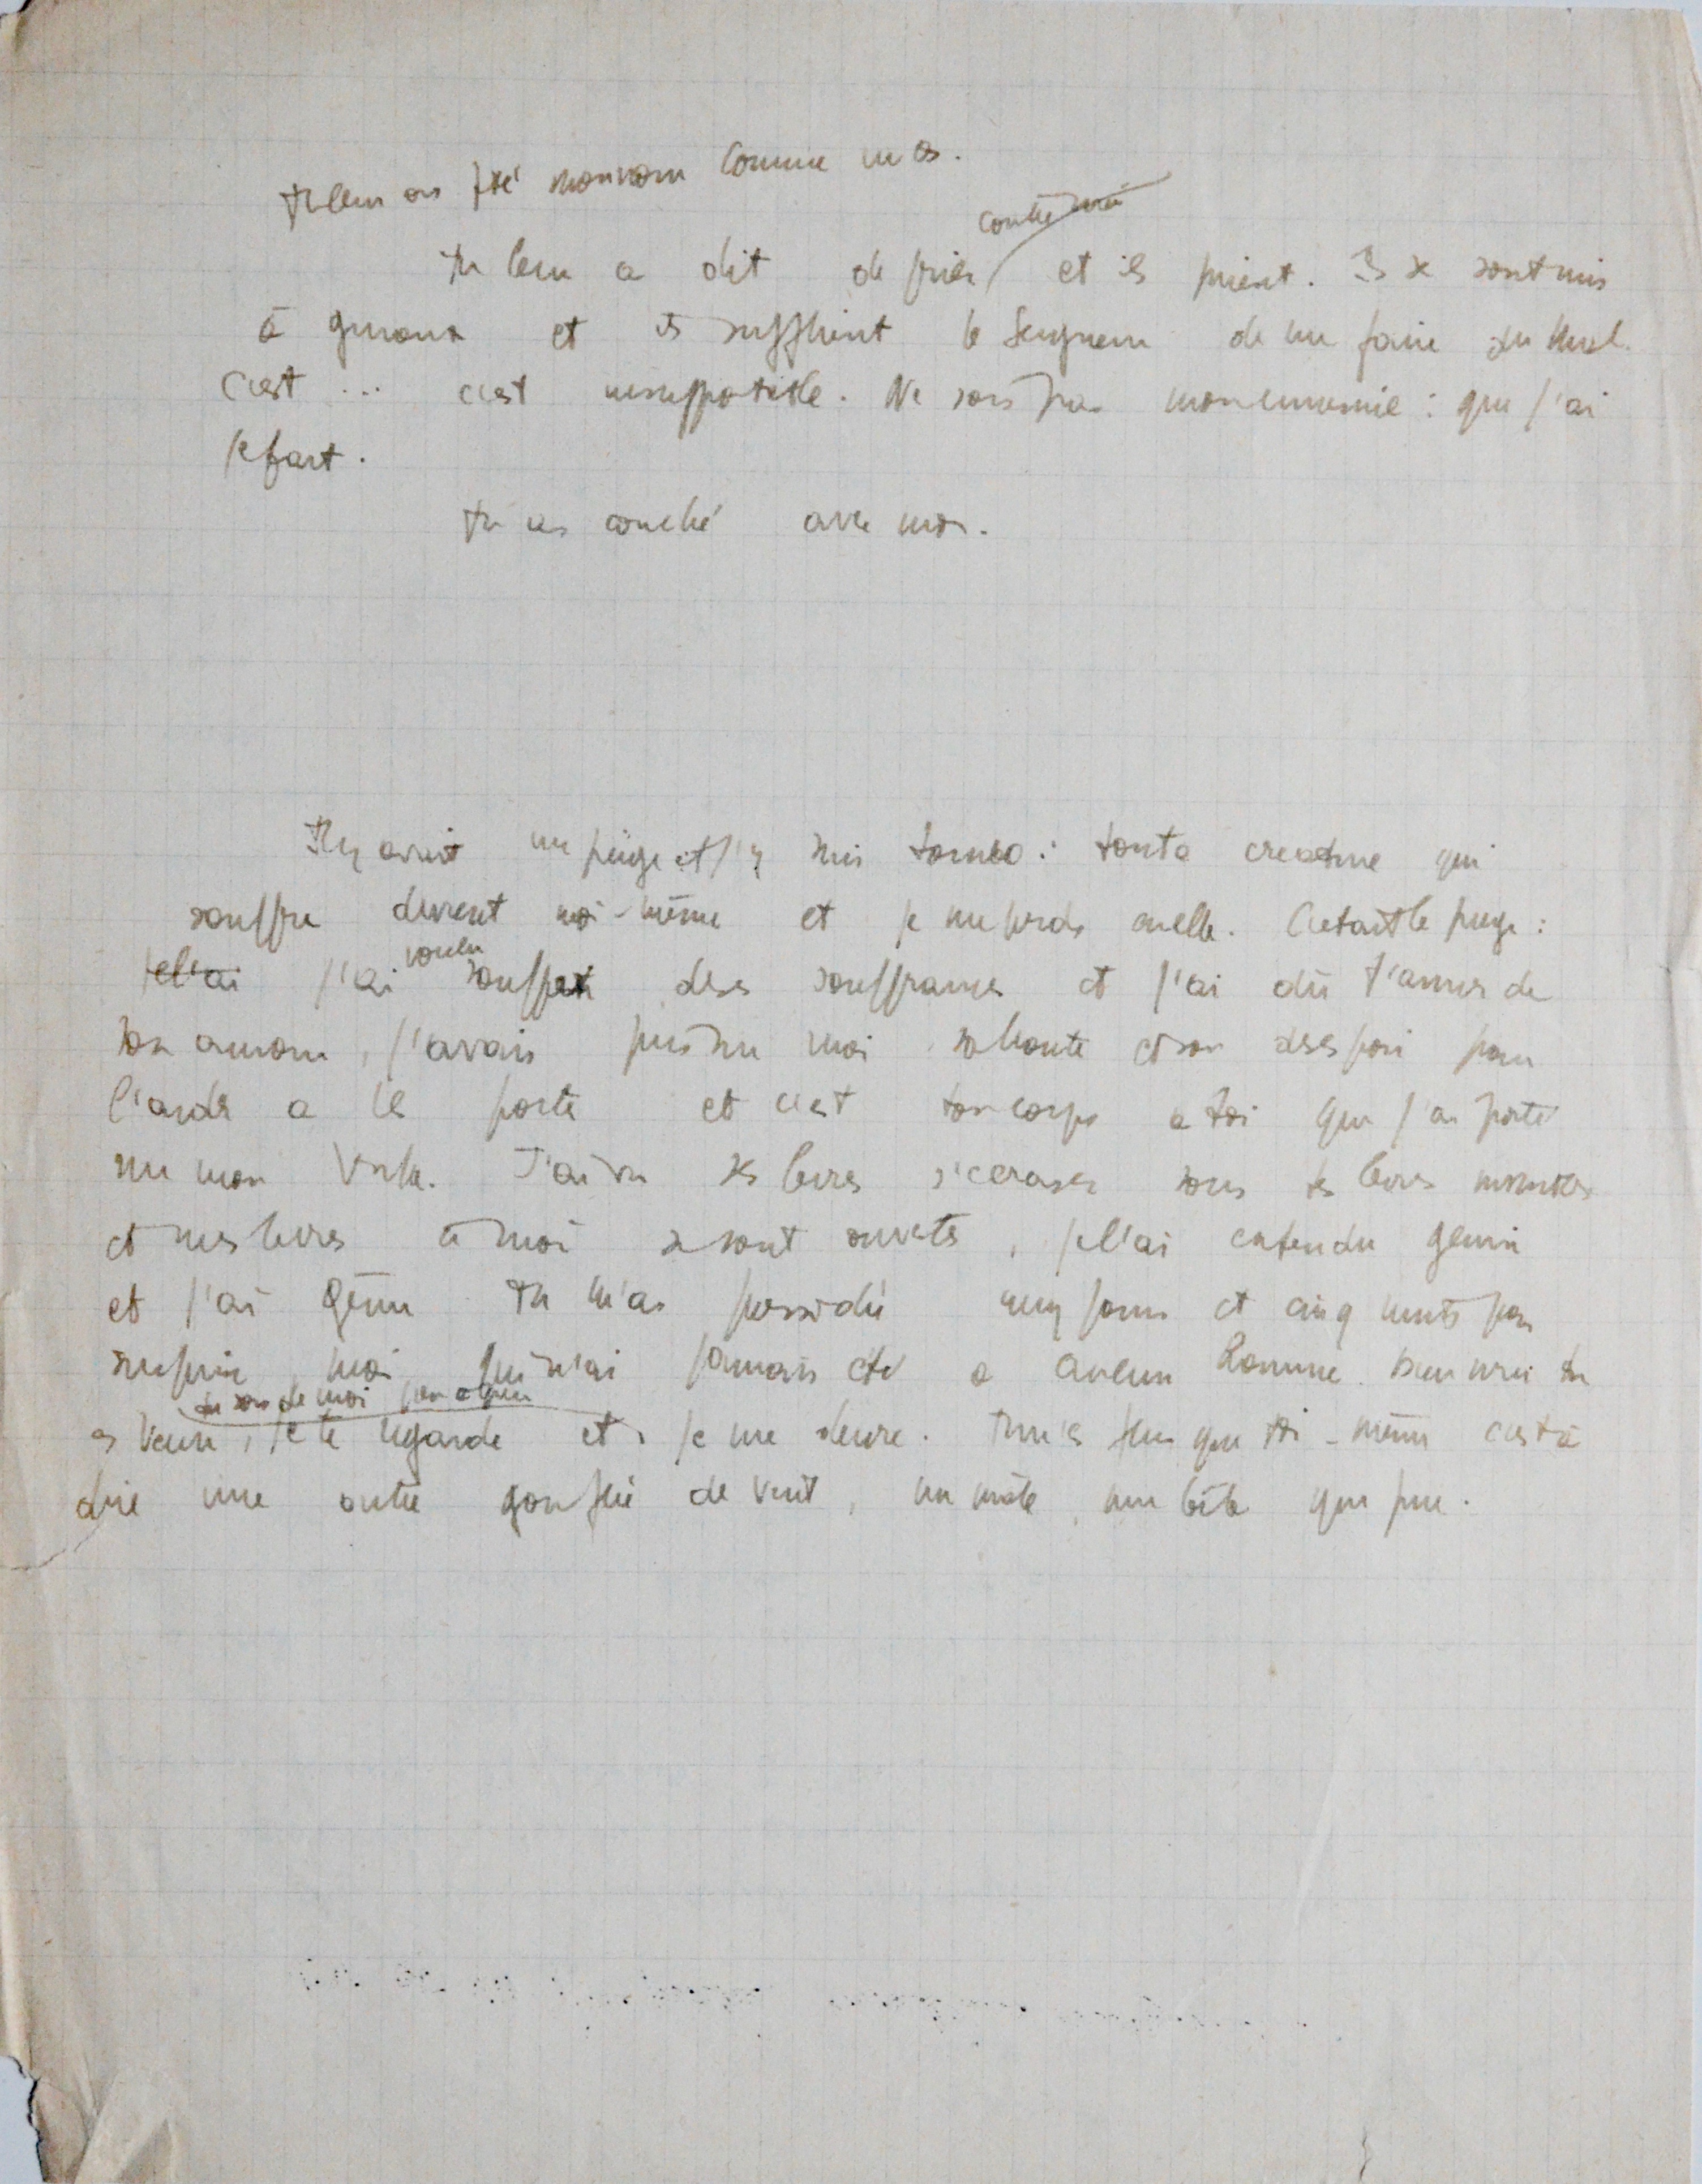 Tu leur as ôté mon nom comme
contre moi
Tu leur a dit de prier et ils prient. Ils se sont mis
à genoux et ils supplient le Seigneur de me faire du mal.
C'est ... c'est insupportable. Ne sois pas mon ennemie : que j'ai
je fait.
Tu as couché avec moi.
Il y avait un piège et j'y suis tombé : toute creature qui
souffre devient moi-même et je me perds en elle. C'etait le piege :
je l'ai j'ai souffert ses souffrances et j'ai dû t'aimer de
voulu
son amour, j'avais pris sur moi sa honte et son desespoir pour
l'aider a les porter et c'est ton corps a toi que j'ai porté
sur mon ventre. J'ai vu ses levres s'ecraser sous tes levres
et mes levres à moi se sont ouvertes, je l'ai entendu gemir
et j'ai gémi Tu m'as possedée cinq jours et cinq nuits par
surprise moi qui n'ai jamais été a aucun homme. bien
tu sors de moi
es venu, je te regarde et je me delivre. Tu n'es plus que toi-même c'est à
dire une outre gonflée de vent, un mâle, une bête qui pue.